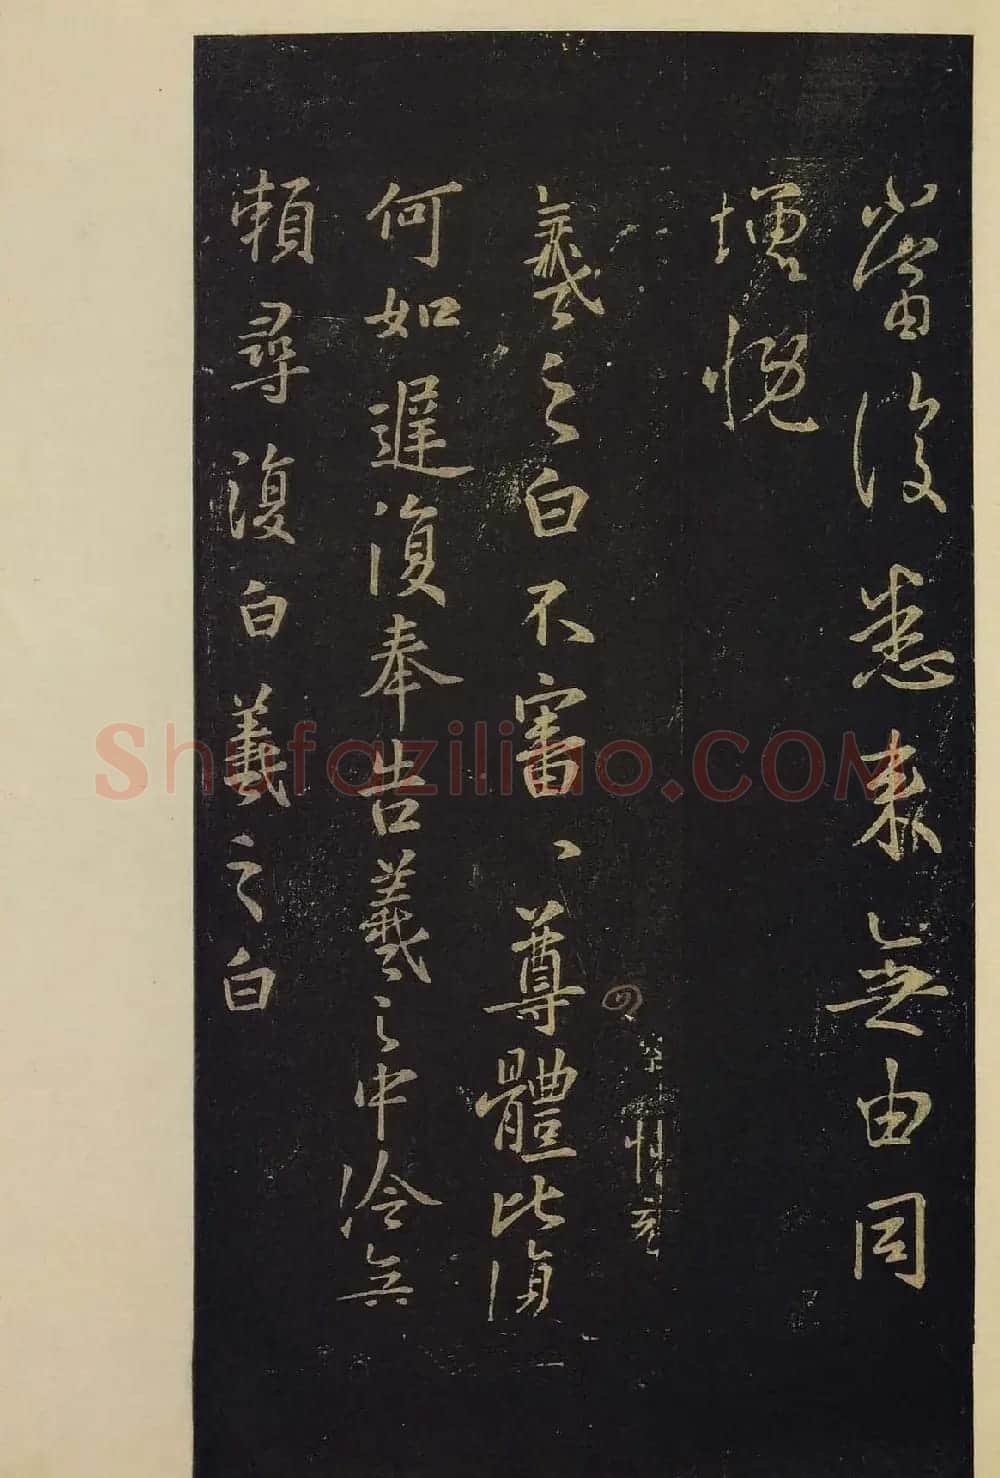 當復悉來無由同
增慨
羲之白不審、尊體比復
何如遲復奉告羲之中冷無
賴尋復白羲之白
Shufaziliao.COM